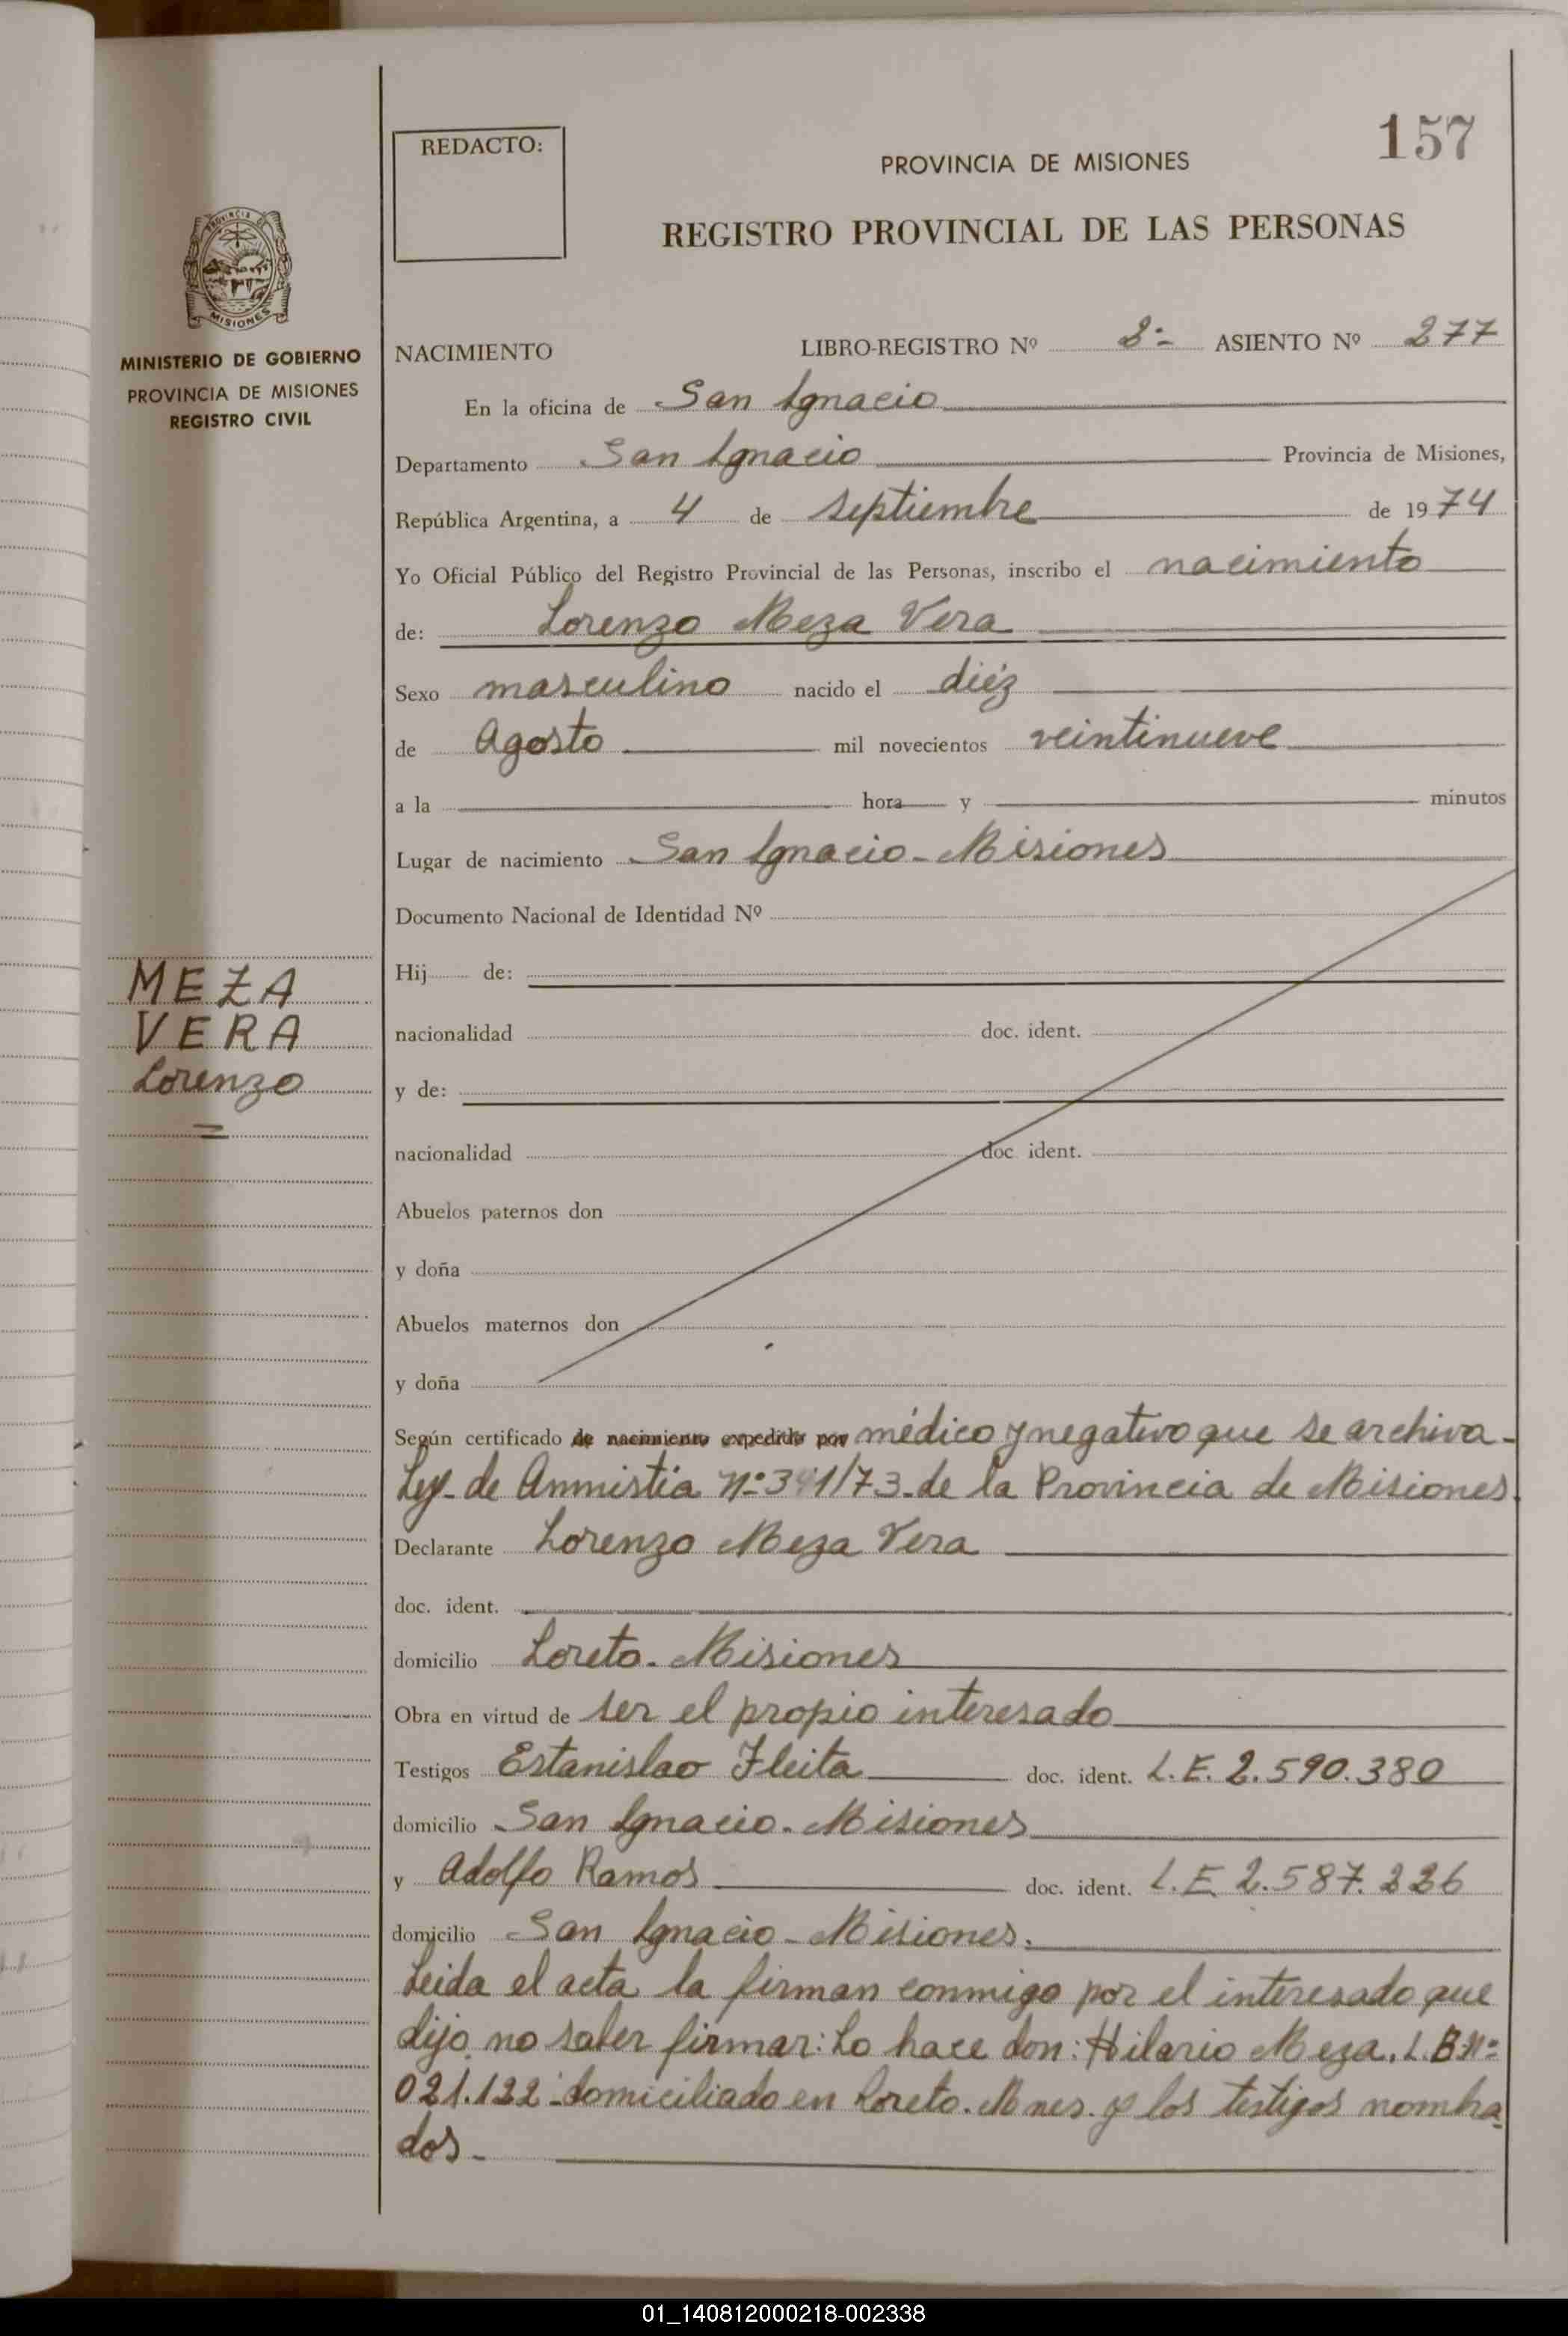 157
REDACTO:
PROVINCIA DE MISIONES
REGISTRO PROVINCIAL DE LAS PERSONAS
PROVINCIA DE
MISIONES
MINISTERIO DE GOBIERNO
PROVINCIA DE MISIONES
REGISTRO CIVIL
NACIMIENTO LIBRO-REGISTRO Nº 2º- ASIENTO Nº 277
En la oficina de San Ignacio
Departamento San Ignacio Provincia de Misiones,
República Argentina, a 4 de septiembre de 1974
Yo Oficial Público del Registro Provincial de las Personas, inscribo el nacimiento
de: Lorenzo Meza Vera
Sexo masculino nacido el diéz
de Agosto mil novecientos veintinueve
a la hora y minutos
Lugar de nacimiento San Ignacio - Misiones
Documento Nacional de Identidad Nº
MEZA
VERA
Lorenzo
Hij de:
nacionalidad doc. ident.
y de:
nacionalidad doc. ident.
Abuelos paternos don
y doña
Abuelos maternos don
y doña
Según certificado de nacimiento expedido por médico y negativo que se archiva-
Ley de Amnistia nº 341/73. de la Provincia de Misiones.
Declarante Lorenzo Meza Vera
doc. ident.
domicilio Loreto. Misiones
Obra en virtud de ser el propio interesado
Testigos Estanislao Fleita doc. ident. L.E. 2.590.380
domicilio San Ignacio. Misiones
y Adolfo Ramos doc. ident. L.E. 2.587.226
domicilio San Ignacio - Misiones.
Leida el acta la firman conmigo por el interesado que
dijo no saber firmar: Lo hace don: Hilario Meza. L.B Nº
021.122 - domiciliado en Loreto. Mnes. y los testigos nombra
dos-
01_140812000218-002338